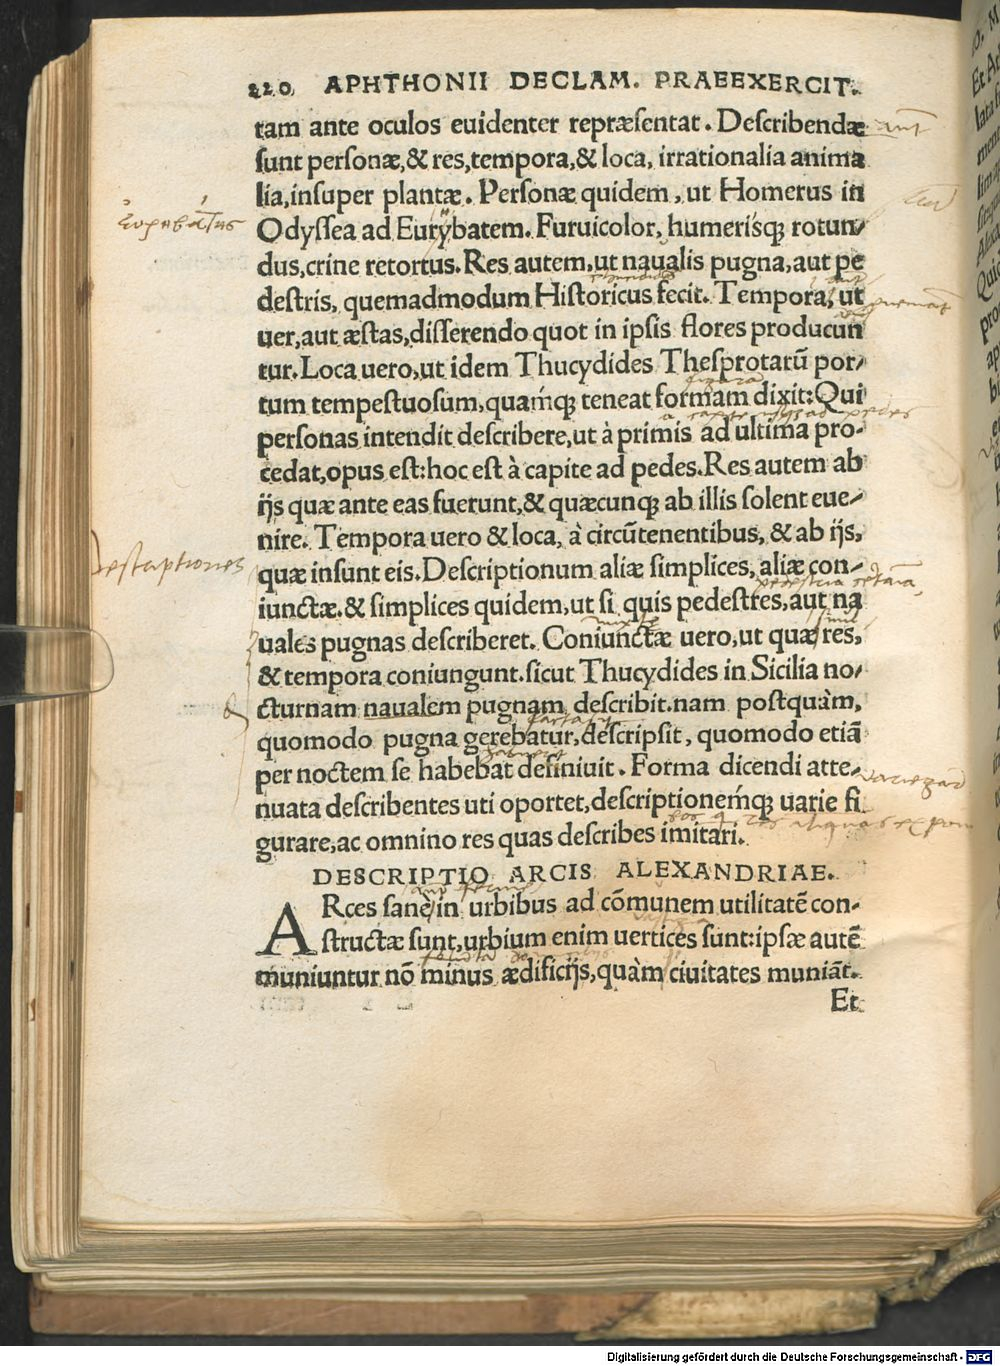 220 APHTHONII DECLAM. PRAEEXERCIT.
tam ante oculos euidenter repræsentat. Describendæ
sunt personæ, & res, tempora, & loca, irrationalia anima
lia, insuper plantæ. Personæ quidem, ut Homerus in
Odyssea ad Eurybatem. Furuicolor, humerisq; rotun-
dus, crine retortus. Res autem, ut naualis pugna, aut pe
destris, quemadmodum Historicus fecit. Tempora, ut
uer, aut æstas, disserendo quot in ipsis flores producun
tur. Loca uero, ut idem Thucydides Thesprotarū por-
tum tempestuosum, quamq́; teneat formam dixit: Qui
personas intendit describere, ut à primis ad ultima pro-
cedat, opus est: hoc est à capite ad pedes. Res autem ab
ijs quæ ante eas fuerunt, & quæcunq; ab illis solent eue-
nire. Tempora uero & loca, à circūtenentibus, & ab ijs,
quæ insunt eis. Descriptionum aliæ simplices, aliæ con-
iunctæ. & simplices quidem, ut si quis pedestres, aut na
uales pugnas describeret. Coniunctæ uero, ut quæ res,
& tempora coniungunt. sicut Thucydides in Sicilia no-
cturnam naualem pugnam describit. nam postquàm,
quomodo pugna gerebatur, descripsit, quomodo etiā
per noctem se habebat definiuit. Forma dicendi atte-
nuata describentes uti oportet, descriptionemq́; uarie fi
gurare, ac omnino res quas describes imitari.
DESCRIPTIO ARCIS ALEXANDRIAE.
ARces sanè in urbibus ad cōmunem utilitatē con-
structæ sunt, urbium enim uertices sunt: ipsæ autē
muniuntur nō minus ædificijs, quàm ciuitates muniāt.
Et
Digitalisierung gefördert durch die Deutsche Forschungsgemeinschaft - DFG